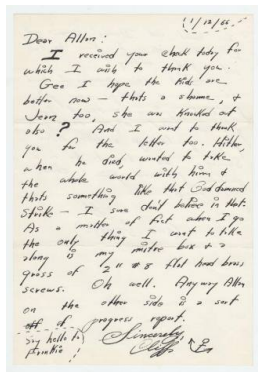 1/12/66
Dear Allon:
I received your check today for
which I wish to thank you.
Gee I hope the kids are
better now — thats a shame, &
Jean too, she was knocked out
also? And I want to thank
you for the letter too. Hitler,
when he died, wanted to take
the whole world with him &
thats something like that God damned
strike — I sure dont believe in that.
As a matter of fact when I go
the only thing I want to take
along is my mitre box & a
gross of 2" #8 flat head brass
screws. Oh well. Anyway Allon
on the other side is a sort
off of progress report.
Sincerely,
Cliff
Say hello to